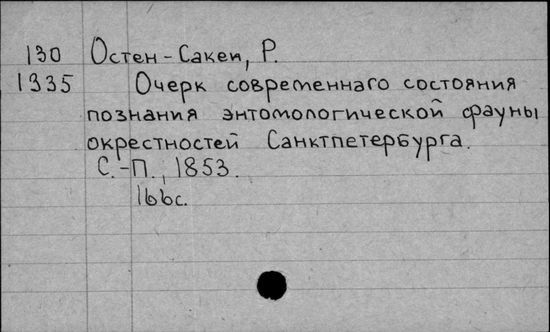 130 Остен-Сакен, Р.
1335 Очерк современнаго состояния
познания энтомологической фауны
окрестностей Санктпетербурга.
С.-П., 1853.
166с.